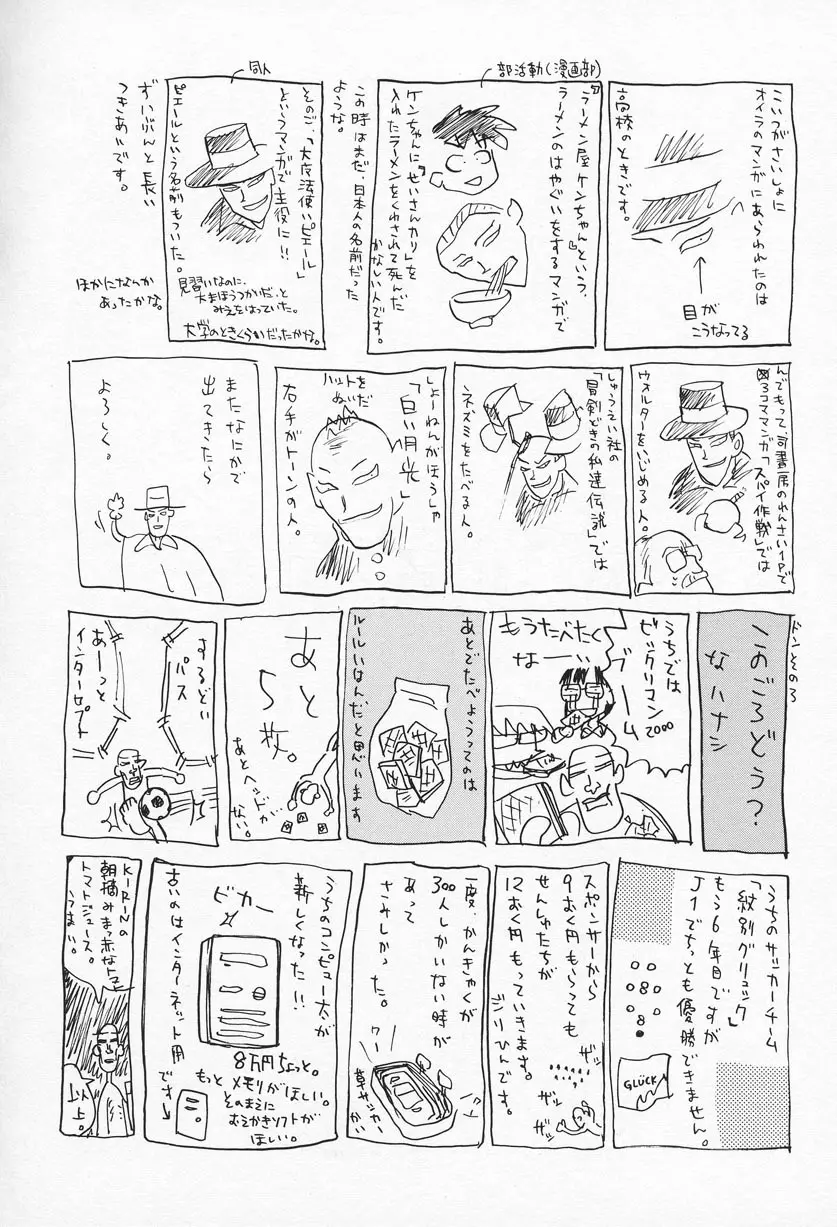 こいつがさいしょに
オイラのマンガにあらわれたのは
高校のときです。
目が
こうなってる
部活動(漫画部)
「ラーメン屋ケンちゃん」という、
ラーメンのはやぐいをするマンガで
ケンちゃんに『せいさんカリ』を
入れたラーメンをくわされて死んだ
かなしい人です。
この時はまだ、日本人の名前だった
ような。
同人
そのご、「大魔法使いピエール」
というマンガで主役に!!
ピエールという名前もついた。
見習いなのに、
大まほうつかいだ、と
みえをはっていた。
大学のときくらいだったかな。
ずいぶんと長い
つきあいです。
ほかになんか
あったかな。
んでもって、司書房のれんさい1Pで
3コママンガ「スパイ作戦」では
ウォルターをいじめる人。
しゅうえい社の
「冒剣どきの私達伝説」では
ネズミをたべる人。
ハットを
ぬいだ
しょーねんがほうしゃ
「白い月光」
右手がトーンの人。
またなにかで
出てきたら
よろしく。
ドンその3
このごろどう?
なハナシ
うちでは
ゼックリコン
2000
ブーム
もうたべたく
なーい
あとでたべようってのは
ルールいはんだと思います
あと
5枚。
あとヘッドが
ない。
するどい
パス
あーっと
インターセプト
うちのサッカーチーム
「紋別グリュック」
もう6年目ですが
J1でちっとも優勝できません。
GLÜCK
スポンサーから
9おく円もらっても
せんしゅたちが
12おく円もっていきます。
ふりひんです。
ザッ
ザッ
ザッ
一度、かんきゃくが
300人しかいない時が
あって
さみしかった。
ワー
ワー
草サッカー
かい
うちのコンピュー太が
新しくなった!!
ピカー
8万円ちょっと。
もっとメモリがほしい。
そのまえに
おえかきソフトが
ほしい。
古いのはインターネット用
です→
KIRINの
朝摘みまっ赤なトマト
トマトジュース。
うまい。
以上。